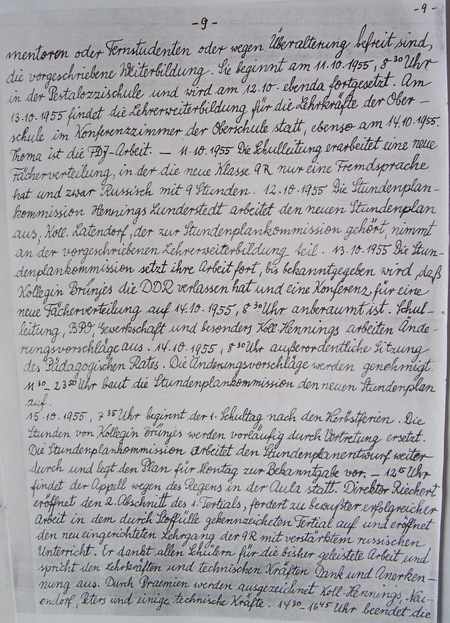 - 9 -
- 9 -
mentoren oder Fernstudenten oder wegen Überalterung befreit sind,
die vorgeschriebene Weiterbildung. Sie beginnt am 11.10.1955, 8 30 Uhr
in der Pestalozzischule und wird am 12.10. ebenda fortgesetzt. Am
13.10.1955 findet die Lehrerweiterbildung für die Lehrkräfte der Ober-
schule im Konferenzzimmer der Oberschule statt, ebenso am 14.10.1955.
Thema ist die FDJ-Arbeit. — 11.10.1955 Die Schulleitung erarbeitet eine neue
Fächerverteilung, in der die neue Klasse 9R nur eine Fremdsprache
hat und zwar Russisch mit 9 Stunden. 12.10.1955 Die Stundenplan-
kommission Hennings Lunderstedt arbeitet den neuen Stundenplan
aus, Koll. Latendorf, der zur Stundenplankommission gehört, nimmt
an der vorgeschriebenen Lehrerweiterbildung teil. 13.10.1955 Die Stun-
denplankommission setzt ihre Arbeit fort, bis bekanntgegeben wird, daß
Kollegin Brünjes die DDR verlassen hat und eine Konferenz für eine
neue Fächerverteilung auf 14.10.1955, 8 30 Uhr anberaumt ist. Schul-
leitung, BPO, Gewerkschaft und besonders Koll. Hennings arbeiten Ände-
rungsvorschläge aus. 14.10.1955, 8 30 Uhr außerordentliche Sitzung
des Pädagogischen Rates. Die Änderungsvorschläge werden genehmigt.
11 30 - 23 00 Uhr baut die Stundenplankommission den neuen Stundenplan
auf.
15.10.1955, 7 35 Uhr beginnt der 1. Schultag nach den Herbstferien. Die
Stunden von Kollegin Brünjes werden vorläufig durch Vertretung ersetzt.
Die Stundenplankommission arbeitet den Stundenplanentwurf weiter
durch und legt den Plan für Montag zur Bekanntgabe vor. — Uhr
findet der Appell wegen des Regens in der Aula statt. Direktor Rieckert
eröffnet den 2. Abschnitt des 1. Tertials, fordert zu bewußter erfolgreicher
Arbeit in dem durch Stoffülle gekennzeichneten Tertial auf und eröffnet
den neueingerichteten Lehrgang der 9R mit verstärktem russischen
Unterricht. Er dankt allen Schülern für die bisher geleistete Arbeit und
spricht den Lehrkräften und technischen Kräften Dank und Anerken-
nung aus. Durch Praemien werden ausgezeichnet Koll. Hennings,
Peters und einige technische Kräfte. 14 30 - 16 45 Uhr beendet die